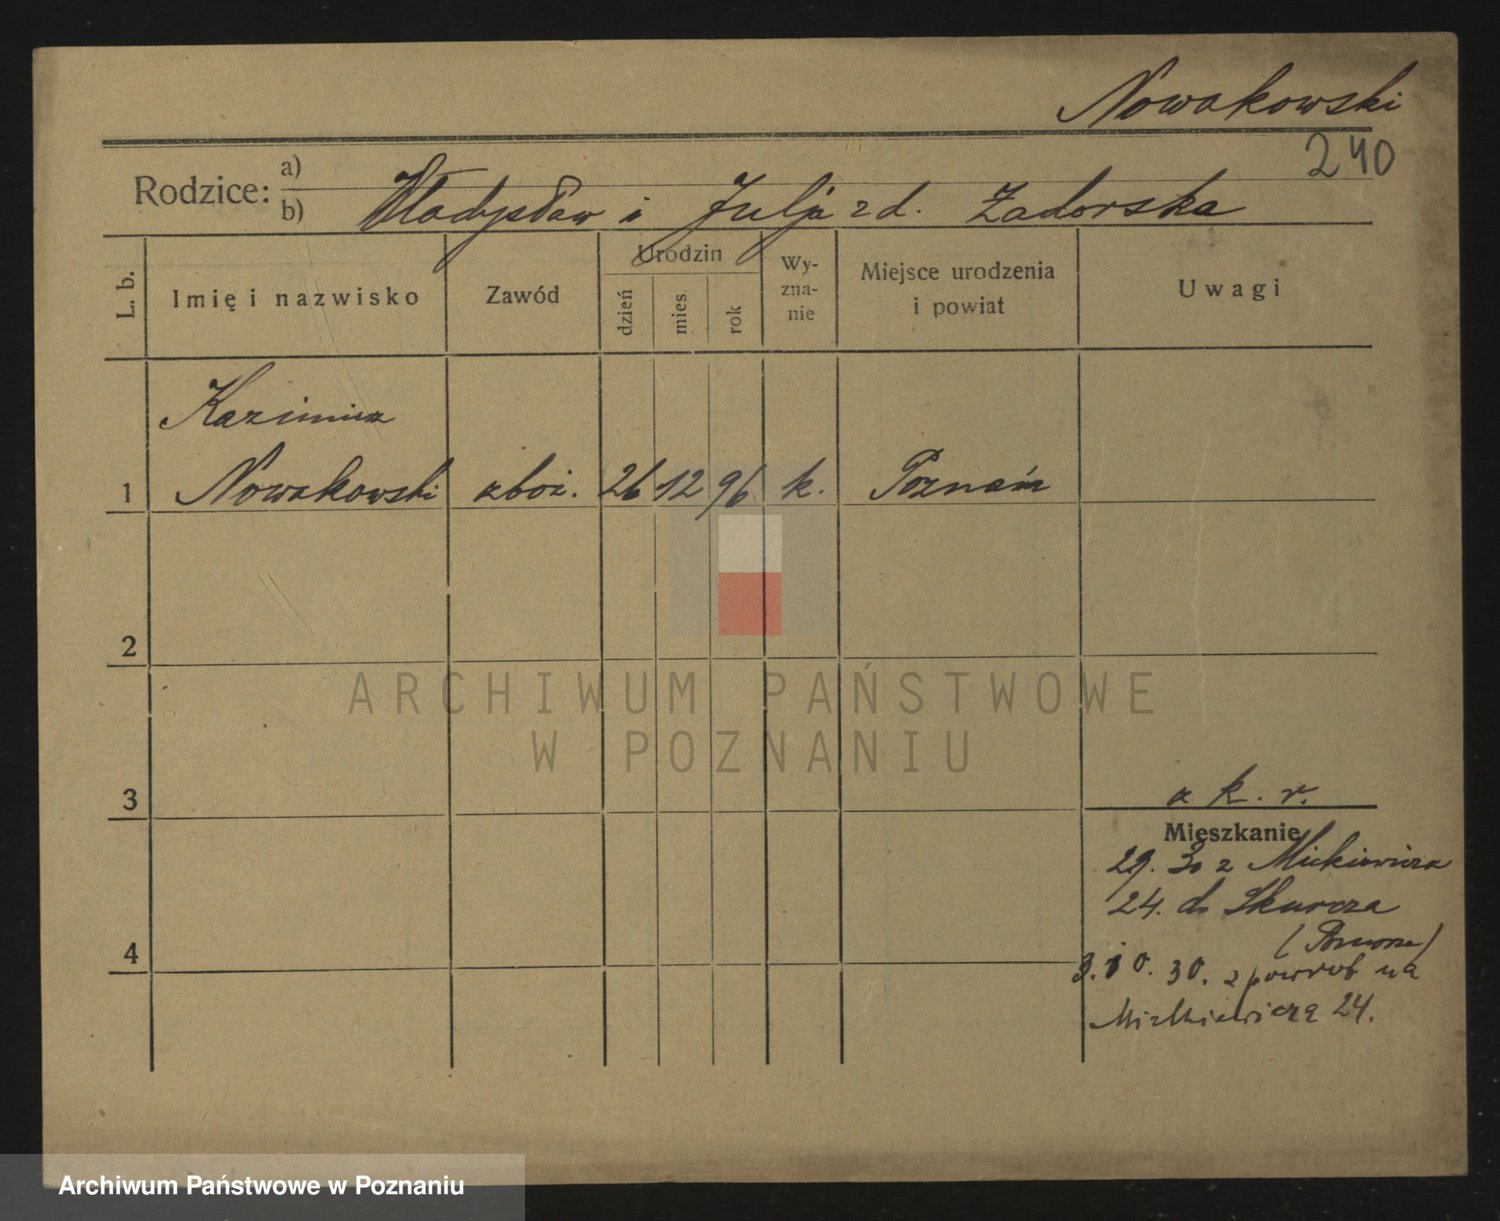 Nowakowski
240
Rodzice: a)
b) Władysław i Julja z d. Zadorska
L. b.
Imię i nazwisko
Zawód
Urodzin
dzień
mies.
rok
Wy-
zna-
nie
Miejsce urodzenia
i powiat
Uwagi
Kazimierz
1 Nowakowski zboż. 26 12 96 k. Poznań
2
ARCHIWUM PAŃSTWOWE
W POZNANIU
3
k. r.
Mieszkanie
29. 30 z Mickiewicza
24. do Skurcza
(Pomorze)
4
3. 10. 30. z powrot na
Mickiewicza 24.
Archiwum Państwowe w Poznaniu